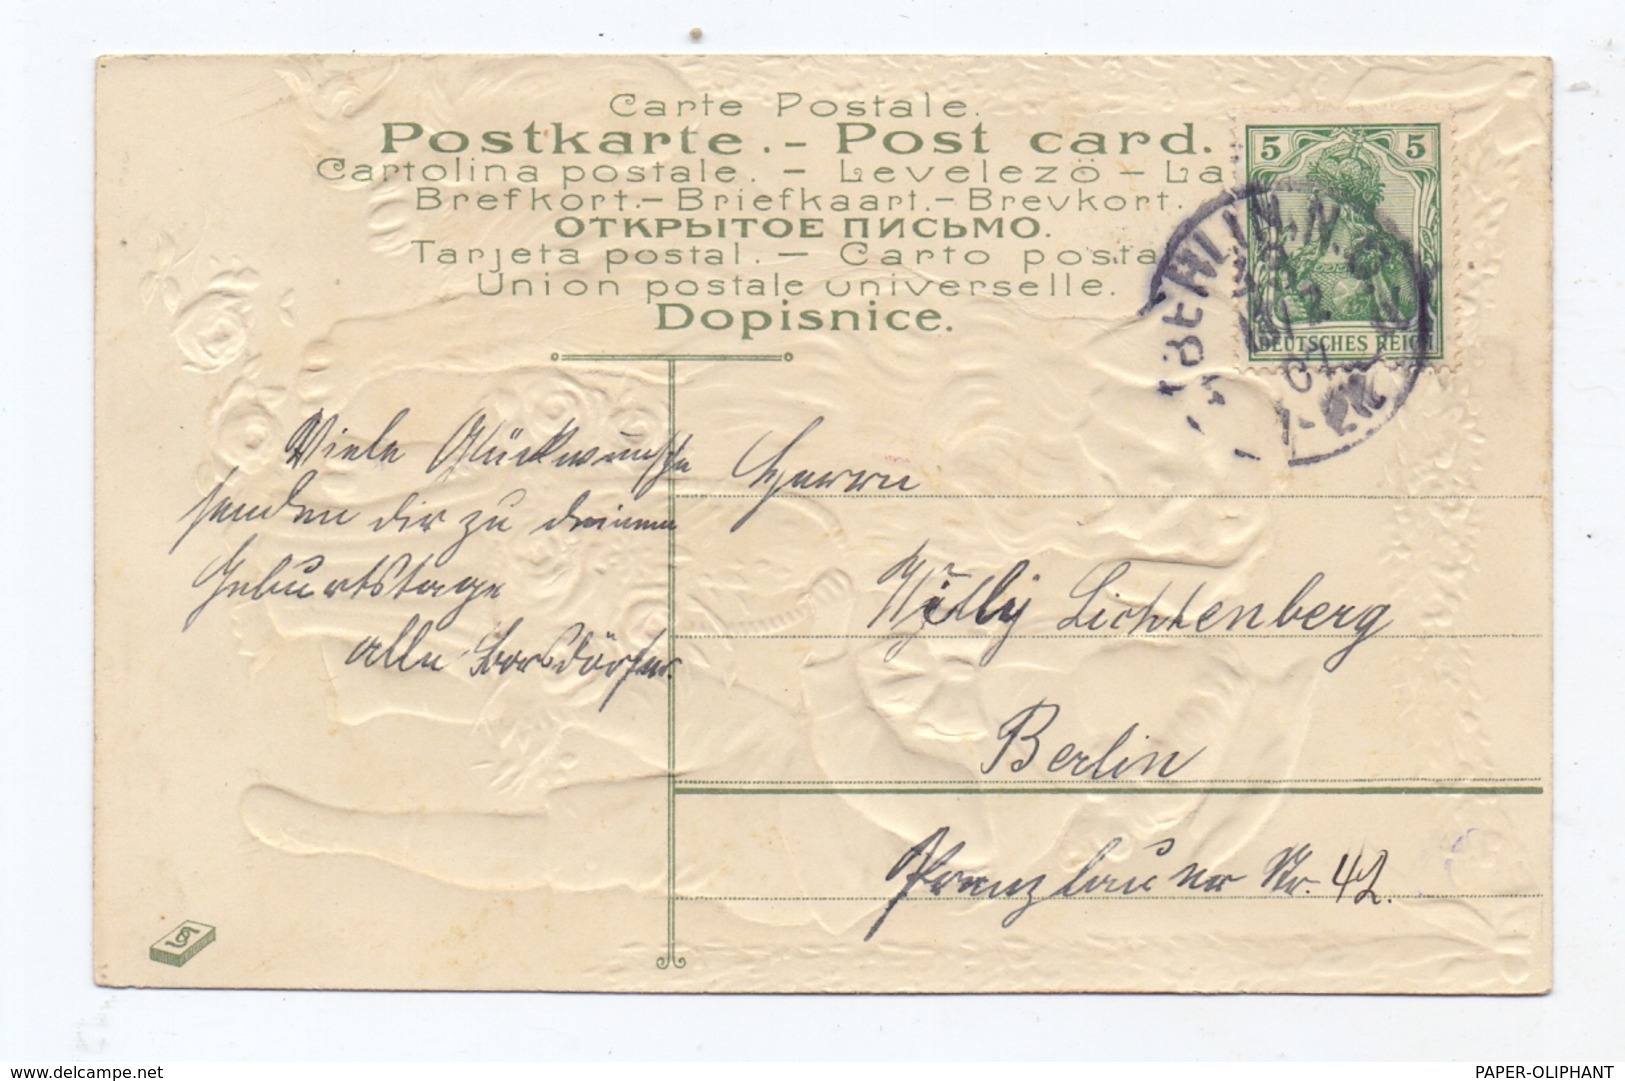 Carte Postale.
Postkarte. - Post card.
Cartolina postale. - Levelezö - La
Brefkort. - Briefkaart. - Brevkort.
ОТКРЫТОЕ ПИСЬМО.
Tarjeta postal. - Carto posta
Union postale universelle.
Dopisnice.
5 5
DEUTSCHES REICH
BERLIN N.O.
12
07
Viele Glückwunsche
senden dir zu deinem
Geburtstage
alle Borsdörfer.
Herrn
Willy Lichtenberg
Berlin
Prenzlauer Str. 42.
delcampe.net
PAPER-OLIPHANT